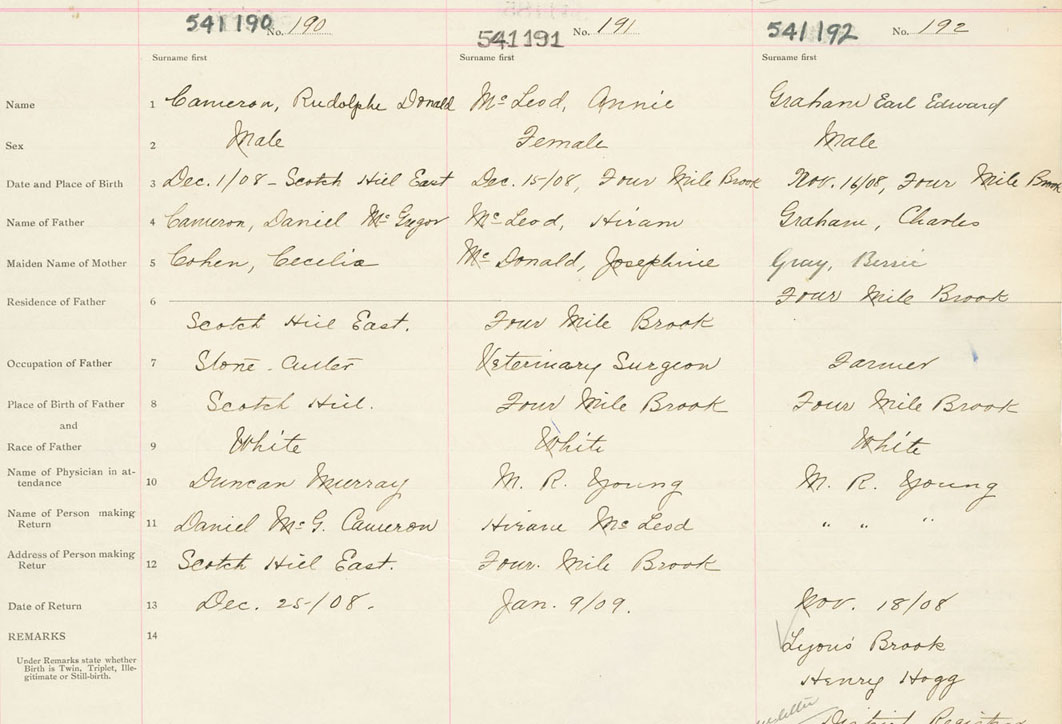 541190 No. 190 541191 No. 191 541192 No. 192
Surname first Surname first Surname first
Name 1 Cameron, Rudolphe Donald McLeod, Annie Graham Earl Edward
Sex 2 Male Female Male
Date and Place of Birth 3 Dec. 1/08 - Scotch Hill East Dec. 15/08, Four Mile Brook Nov. 16/08, Four Mile Brook
Name of Father 4 Cameron, Daniel McGregor McLeod, Hiram Graham, Charles
Maiden Name of Mother 5 Cohen, Cecilia McDonald, Josephine Gray, Bessie
Residence of Father 6 Scotch Hill East. Four Mile Brook Four Mile Brook
Occupation of Father 7 Stone-Cutter Veterinary Surgeon Farmer
Place of Birth of Father 8 Scotch Hill. Four Mile Brook Four Mile Brook
and
Race of Father 9 White White White
Name of Physician in at-
tendance 10 Duncan Murray M. R. Young M. R. Young
Name of Person making
Return 11 Daniel McG. Cameron Hiram McLeod " " "
Address of Person making
Retur 12 Scotch Hill East. Four Mile Brook
Date of Return 13 Dec. 25/08. Jan. 9/09. Nov. 18/08
REMARKS 14
Lyons Brook
Under Remarks state whether
Birth is Twin, Triplet, Ille-
gitimate or Still-birth.
Henry Hogg
District Registrar